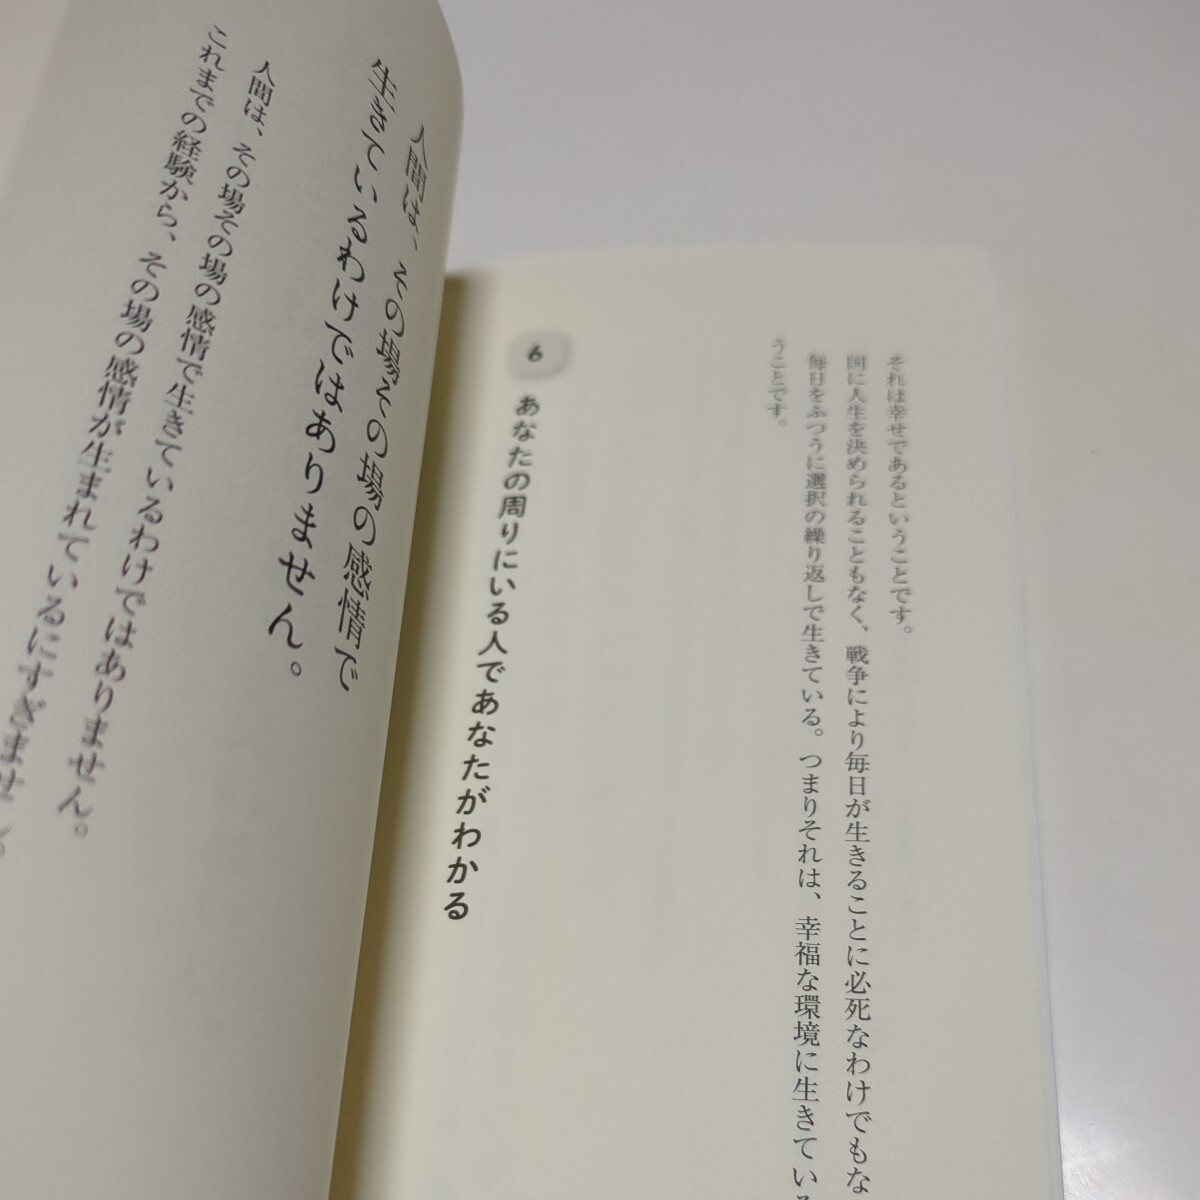 それは幸せであるということです。
国に人生を決められることもなく、戦争により毎日が生きることに必死なわけでもな
毎日をふつうに選択の繰り返しで生きている。つまりそれは、幸福な環境に生きている
うことです。
6
あなたの周りにいる人であなたがわかる
人間は、その場その場の感情で
生きているわけではありません。
人間は、その場その場の感情で生きているわけではありません。
これまでの経験から、その場の感情が生まれているにすぎません。